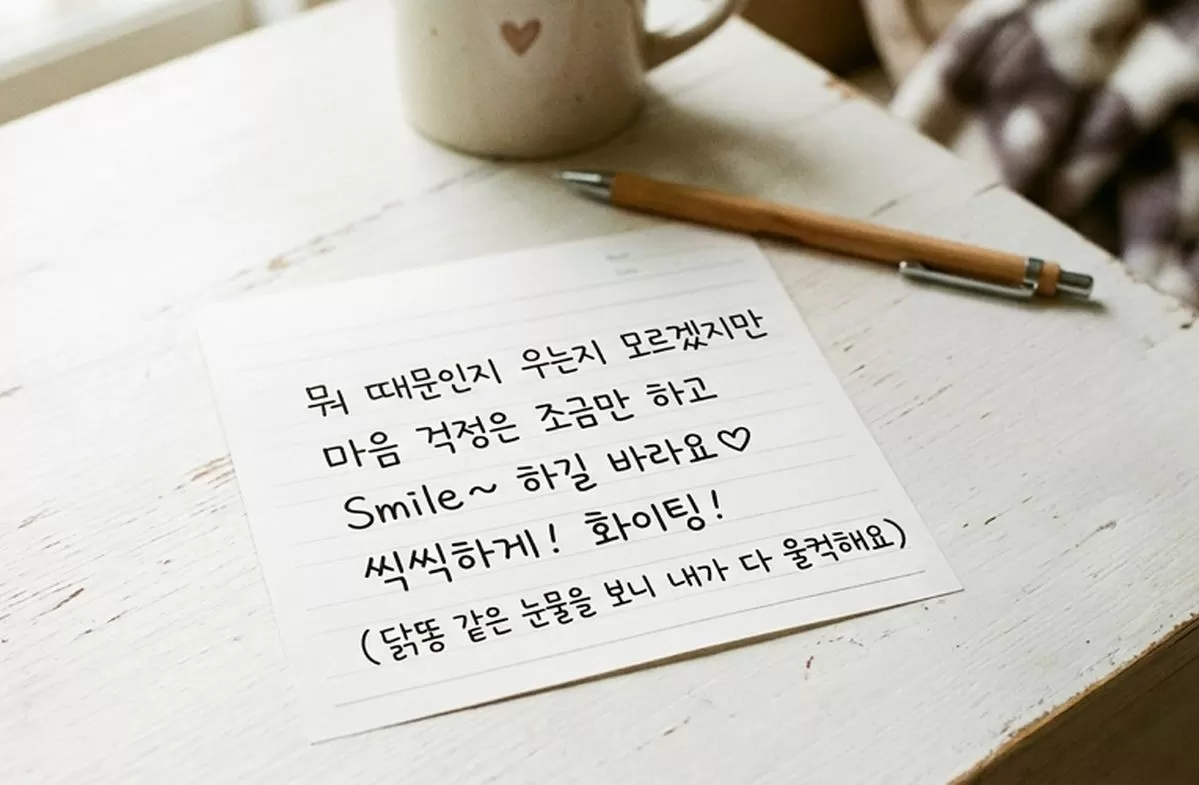 뭐 때문인지 우는지 모르겠지만
마음 걱정은 조금만 하고
Smile~ 하길 바라요♡
씩씩하게! 화이팅!
(닭똥 같은 눈물을 보니 내가 다 울컥해요)